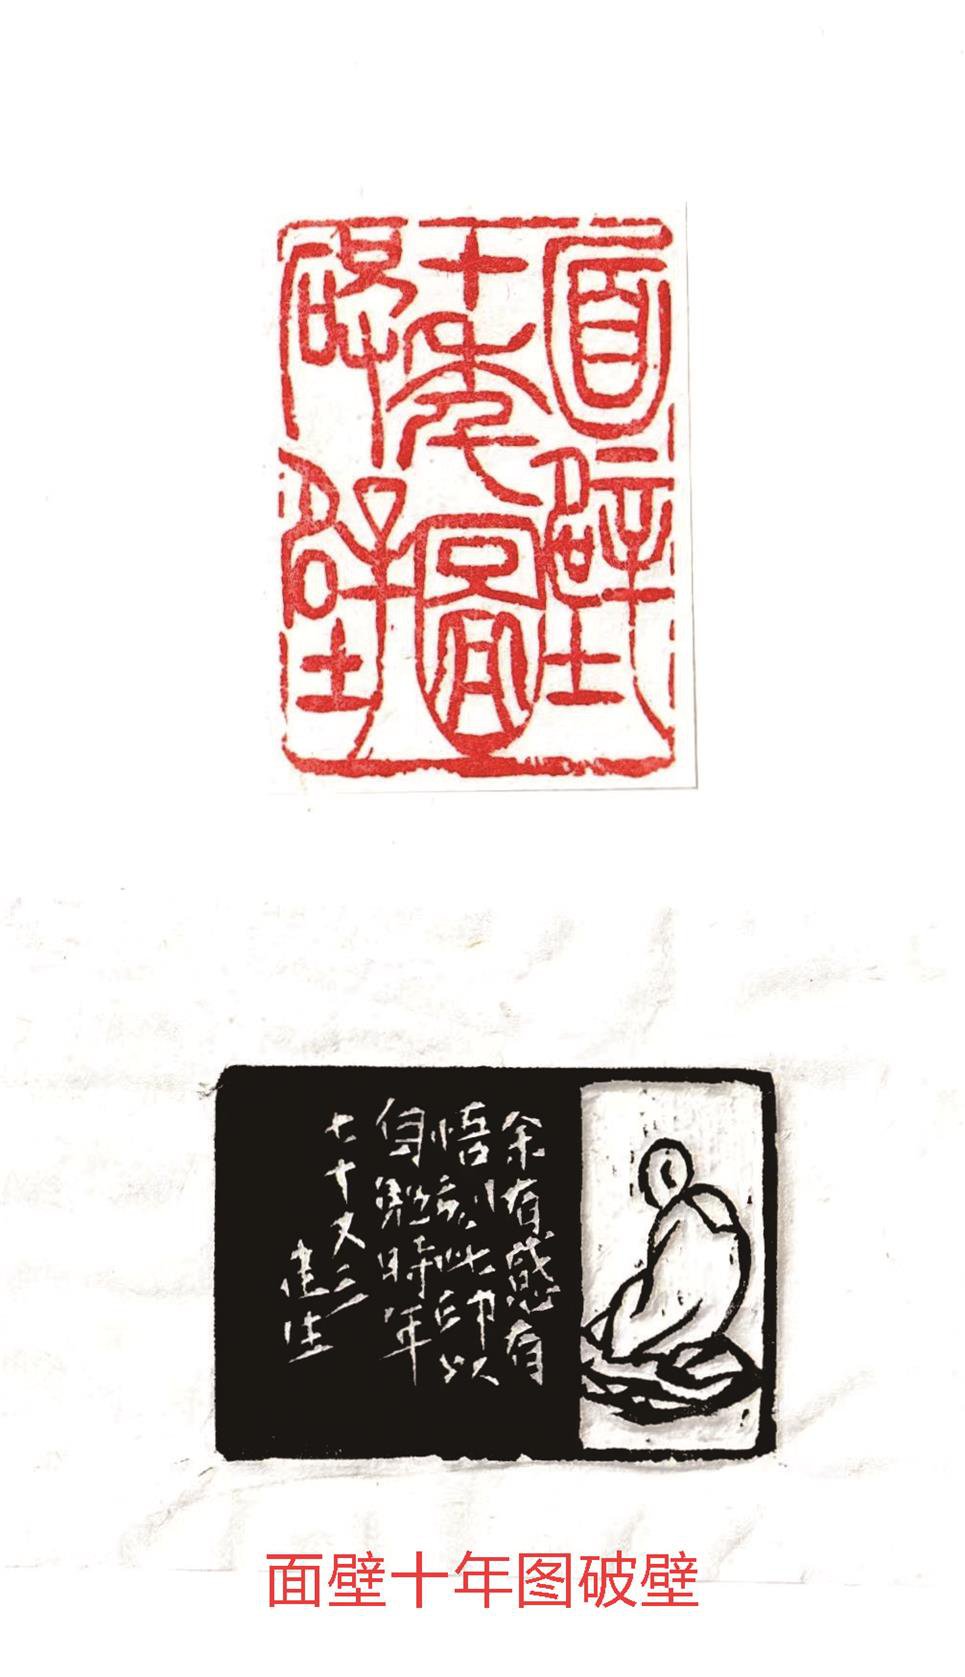 面壁
十年圖
破壁
余有感有
悟刻此印以
自勉時年
七十又二
建生
面壁十年图破壁